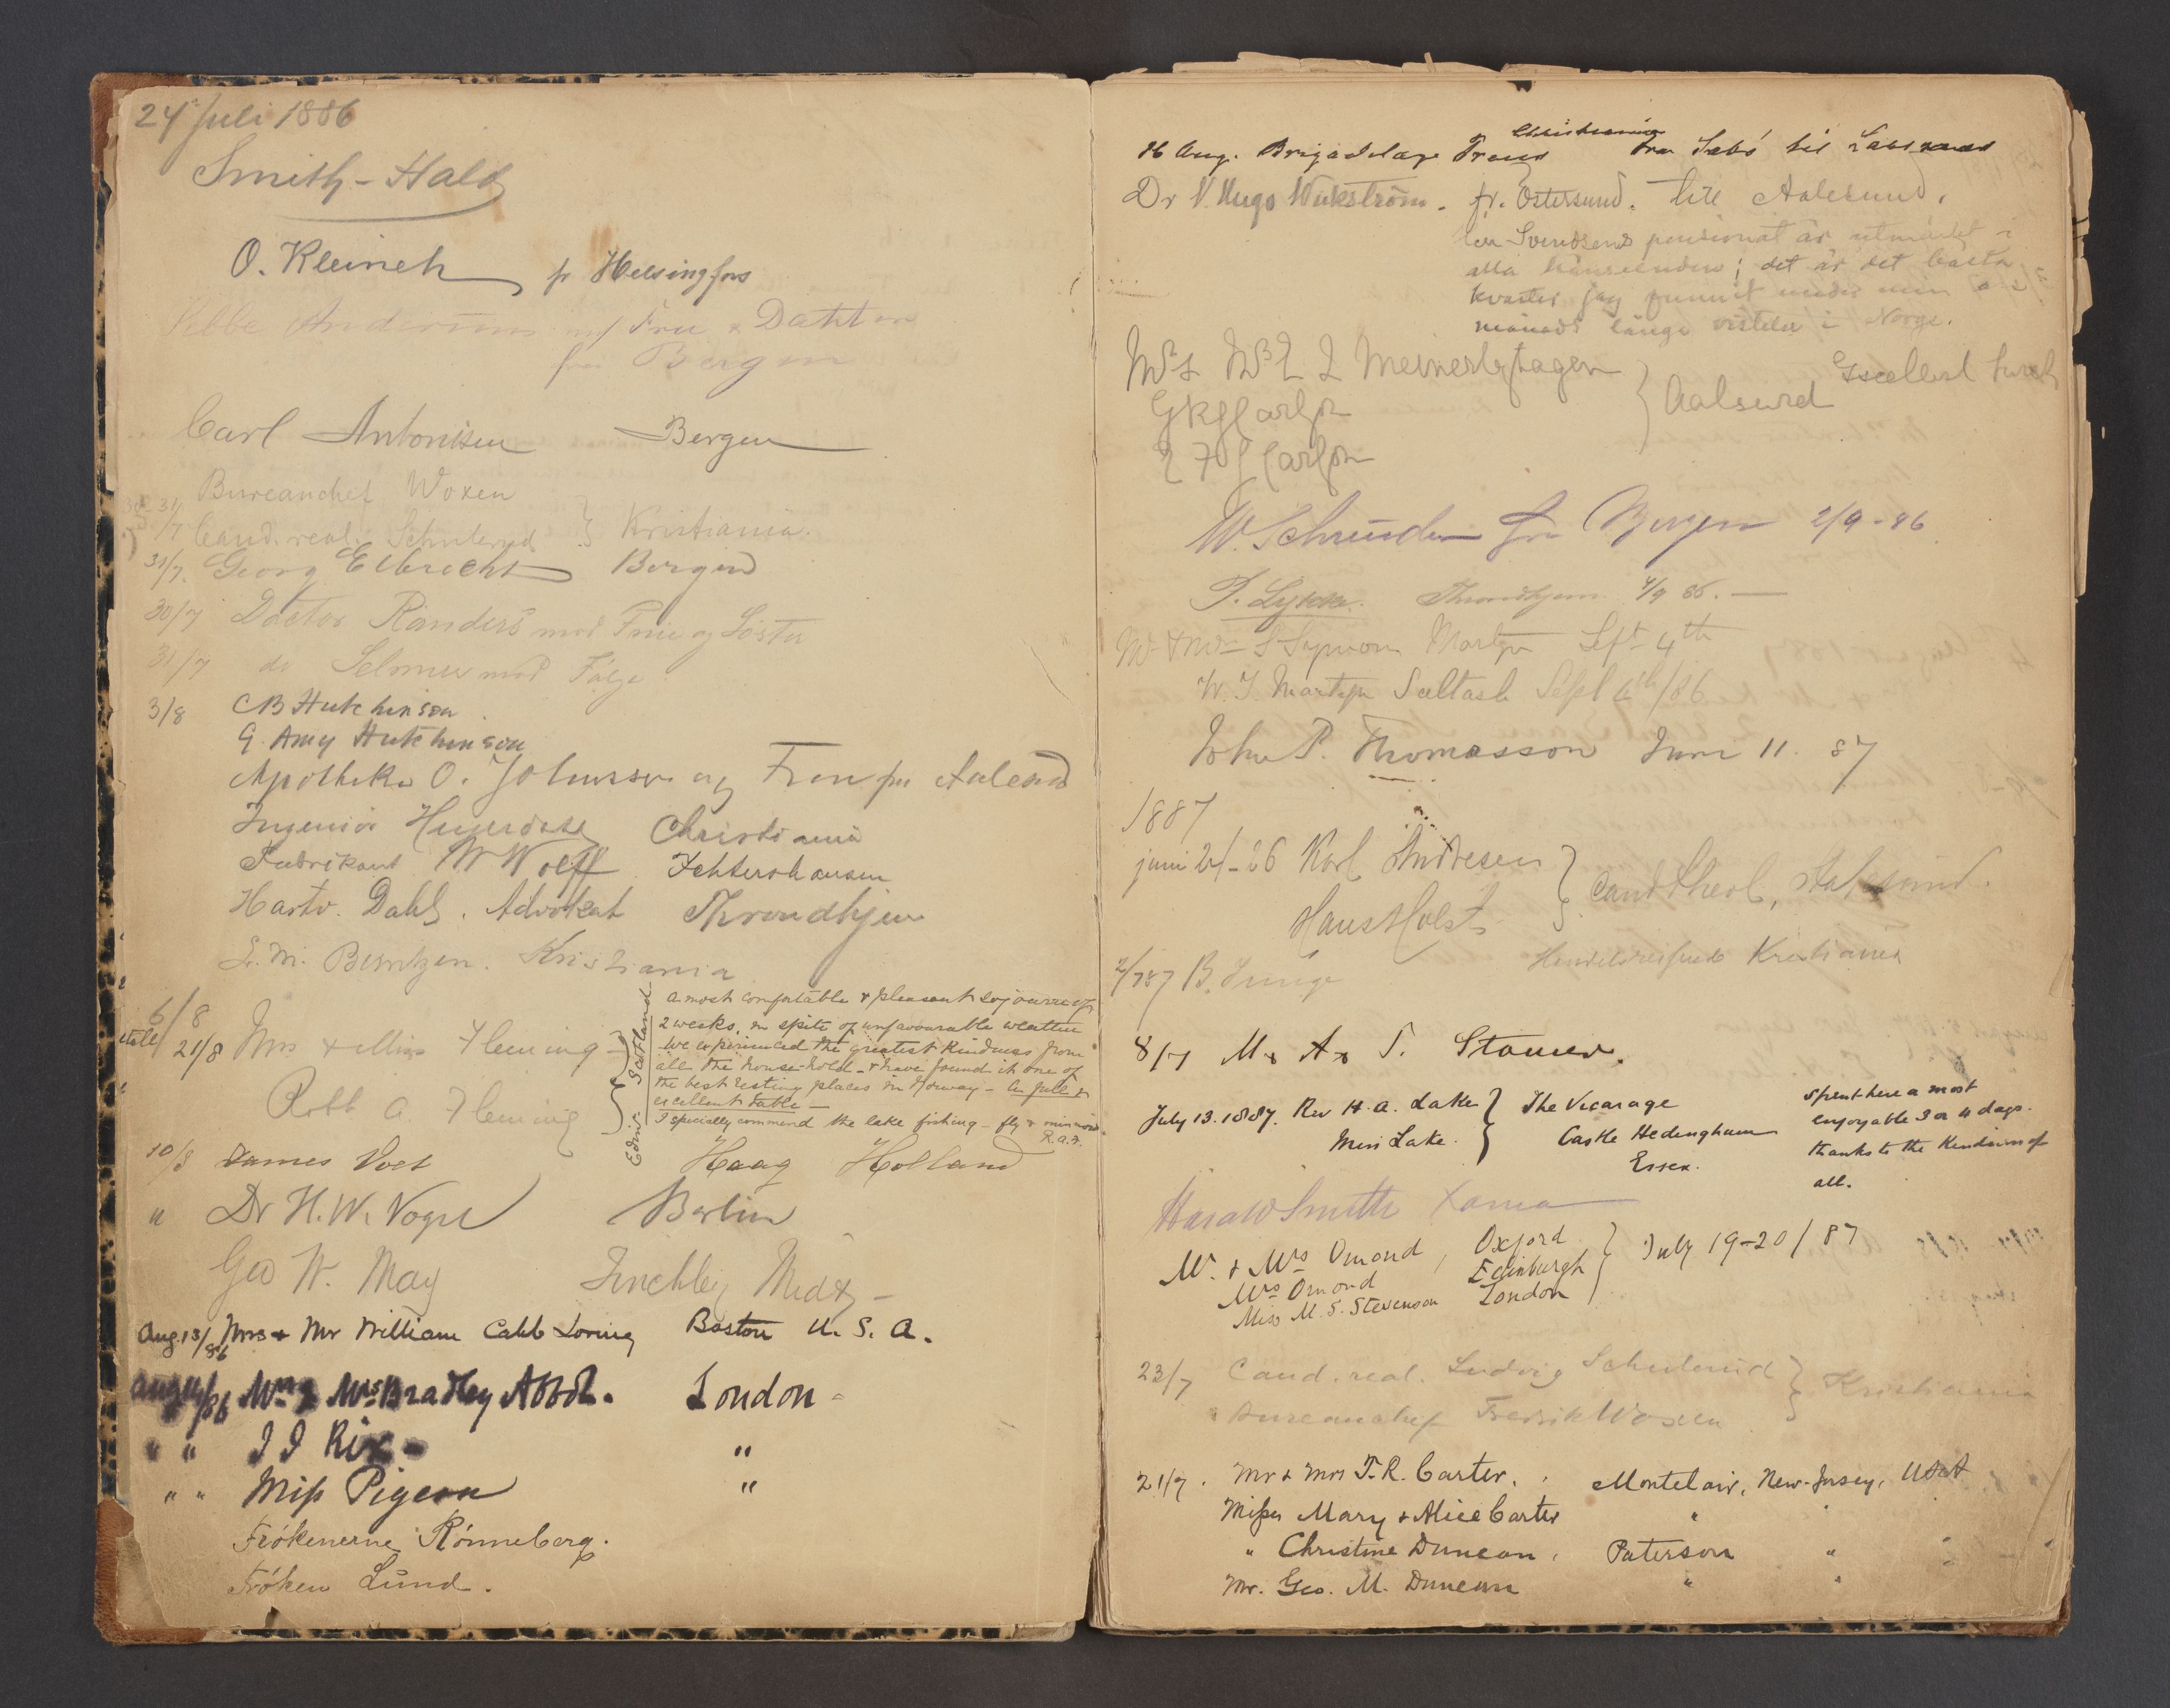 24 Juli 1886
Smith-Hald
O. Kleineh fr Helsingfors
Fru & Datter
fra Bergen
Carl Antonisen Bergen
Bureauchef Woxen
Cand. real. Schulerud } Kristiania.
31/7. Georg Elbrecht Bergen
30/7 Doctor Randers med Frue og Söster
31/7 do Selmer med Følge
3/8 CB Hutchinson
G. Amy Hutchinson
Apotheker O. Johnssen og Frue fra Aalesund
Ingeniör Christiania
Fabrikant W Wolff Ichtershausen
Hartv. Dahl. Advokat Throndhjem
L. M. Bentzen. Kristiania
6/8
21/8 Mrs & Miss Fleming
Robt A. Fleming
Edinr. Scotland
A most comfortable & pleasant sojourn of
2 weeks, in spite of unfavourable weather
We experienced the greatest kindness from
all the house-hold - & have found it one of
the best resting places in Norway - a full &
excellent table -
I specially commend the lake fishing - fly & minnow
R.A.F.
10/8 James Voet Haag Holland
" Dr H. W. Vogel Berlin
Geo W. May Finchley Middx -
Aug. 13/86 Mrs & Mr William Caleb Loring Boston U. S. A.
Aug 14/86 Mr & Mrs Bradley Abbot. London -
" " J J Rix - "
" " Miss Pigeon "
Frökenerne Rönneberg.
Fröken Lund.
Christiania
16 Aug. Brigadelæge Thaus fra Sæbö til
Dr V. Hugo Wickström. fr. Östersund. till Aalesund.
Svendsens pensionat är utmärkt i
alla hänseenden; det är det bästa
kvarter jag funnit under min
månads långa vistelse i Norge.
Meinertzhagen } Aalesund Excellent lunch
W. Schrøder fra Bergen 2/9-86
P. Lykke. Throndhjem 4/9 86. -
Martyn Sept 4th
W. J. Martyn Saltash Sept 6th/86
John P. Thomasson June 11. 87
1887
juni 21-26 Karl Andresen } cand theol, Aalesund.
Hans Holst
2/7 87 B. Junge Handelsreisende Kristiania
8/7 Mr A. T. Stamer.
July 13. 1887. Rev H. A. Lake } The Vicarage
Miss Lake. Castle Hedingham
Essex.
Spent here a most
enjoyable 3 or 4 days.
thanks to the kindness of
all.
Harald Smith Xania
Mr. & Mrs Omond, Oxford } July 19-20/87
Mrs Omond Edinburgh
Miss M. S. Stevenson London
23/7 Cand. real. Ludvig Schulerud } Kristiania
Bureauchef Fredrik Woxen
21/7. Mr & Mrs T. R. Carter. Montclair, New-Jersey, USA
Misses Mary & Alice Carter "
" Christine Duncan, Paterson " "
Mr. Geo. M. Duncan " "